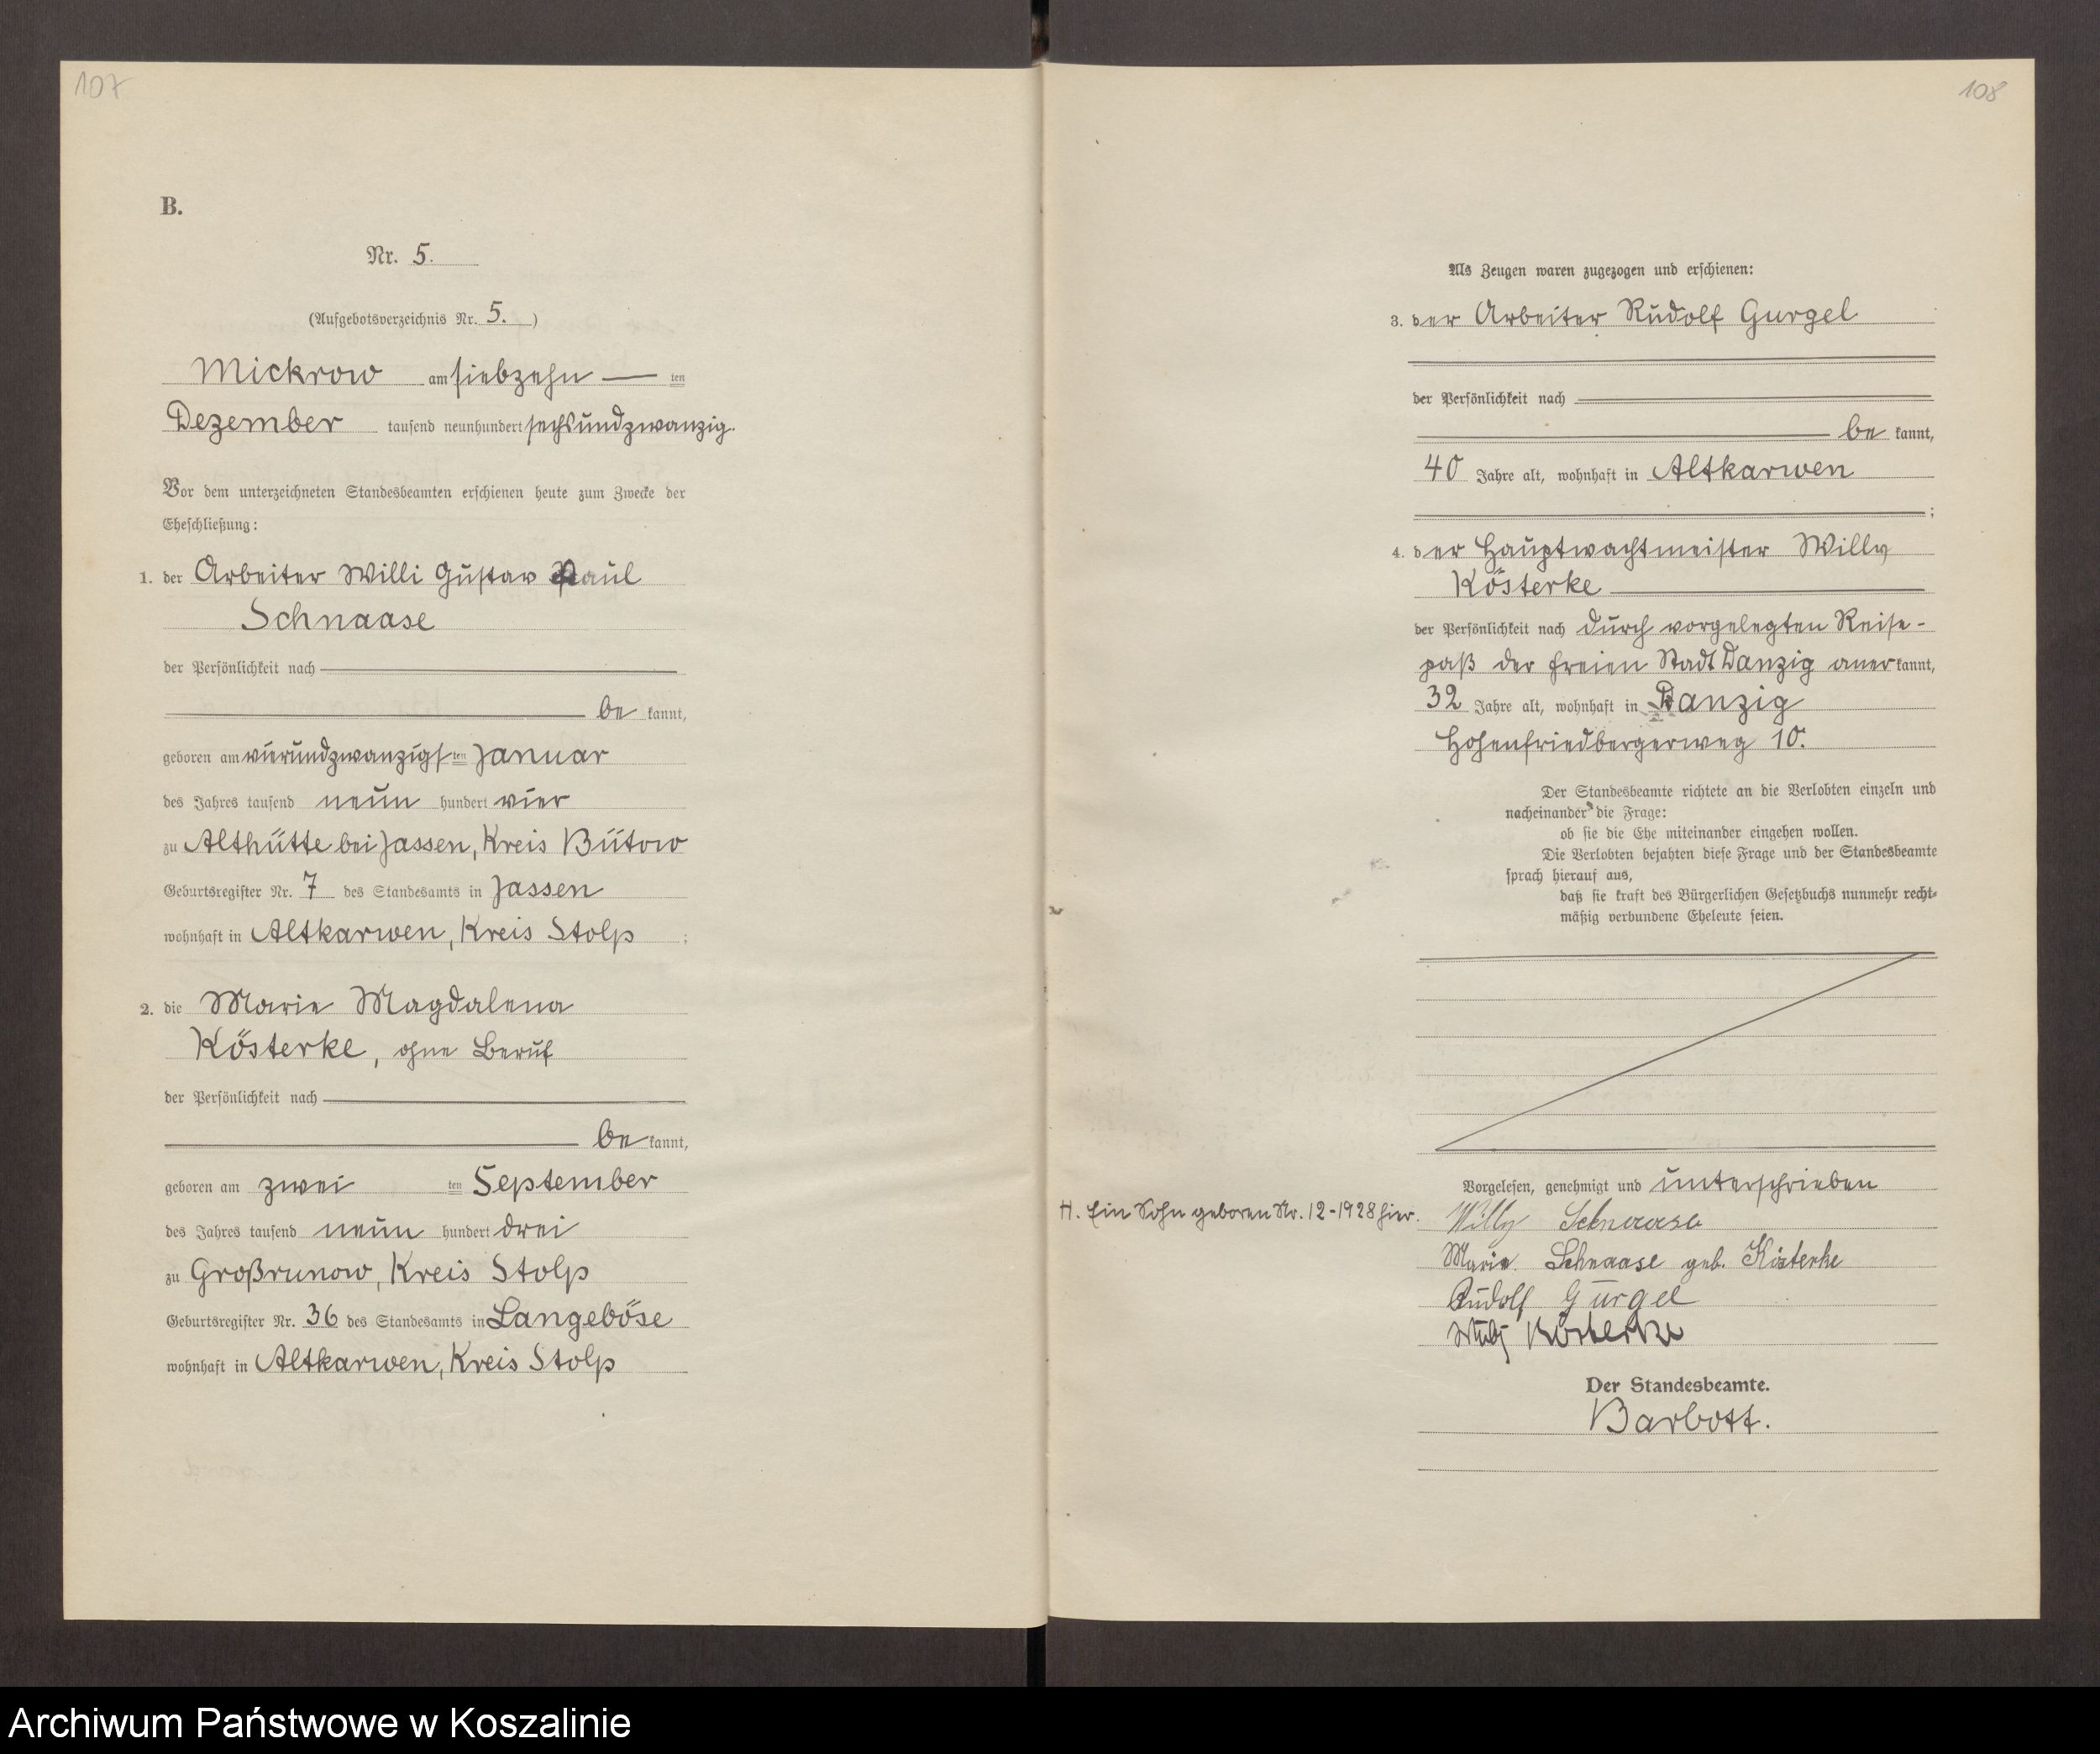 107
B.
Nr. 5.
(Aufgebotsverzeichnis Nr. 5. )
Mickrow am siebzehn — ten
Dezember tausend neunhundert sechsundzwanzig.
Vor dem unterzeichneten Standesbeamten erschienen heute zum Zwecke der
Eheschließung:
1. der Arbeiter Willi Gustav Paul
Schnaase
der Persönlichkeit nach
be kannt,
geboren am vierundzwanzigs ten Januar
des Jahres tausend neun hundert vier
zu Althütte bei Jassen, Kreis Bütow
Geburtsregister Nr. 7 des Standesamts in Jassen
wohnhaft in Altkarwen, Kreis Stolp ;
2. die Marie Magdalena
Kösterke, ohne Beruf
der Persönlichkeit nach
be kannt,
geboren am zwei ten September
des Jahres tausend neun hundert drei
zu Großrunow, Kreis Stolp
Geburtsregister Nr. 36 des Standesamts in Langeböse
wohnhaft in Altkarwen, Kreis Stolp
108
Als Zeugen waren zugezogen und erschienen:
3. der Arbeiter Rudolf Gurgel
der Persönlichkeit nach
be kannt,
40 Jahre alt, wohnhaft in Altkarwen
;
4. der Hauptwachtmeister Willy
Kösterke
der Persönlichkeit nach durch vorgelegten Reise-
paß der freien Stadt Danzig aner kannt,
32 Jahre alt, wohnhaft in Danzig
Hohenfriedbergerweg 10.
Der Standesbeamte richtete an die Verlobten einzeln und
nacheinander die Frage:
ob sie die Ehe miteinander eingehen wollen.
Die Verlobten bejahten diese Frage und der Standesbeamte
sprach hierauf aus,
daß sie kraft des Bürgerlichen Gesetzbuchs nunmehr recht-
mäßig verbundene Eheleute seien.
Vorgelesen, genehmigt und unterschrieben
H. Ein Sohn geboren Nr. 12-1928 hier.
Willy Schnaase
Marie Schnaase geb. Kösterke
Rudolf Gurgel
Willy Kösterke
Der Standesbeamte.
Barbott.
Archiwum Państwowe w Koszalinie